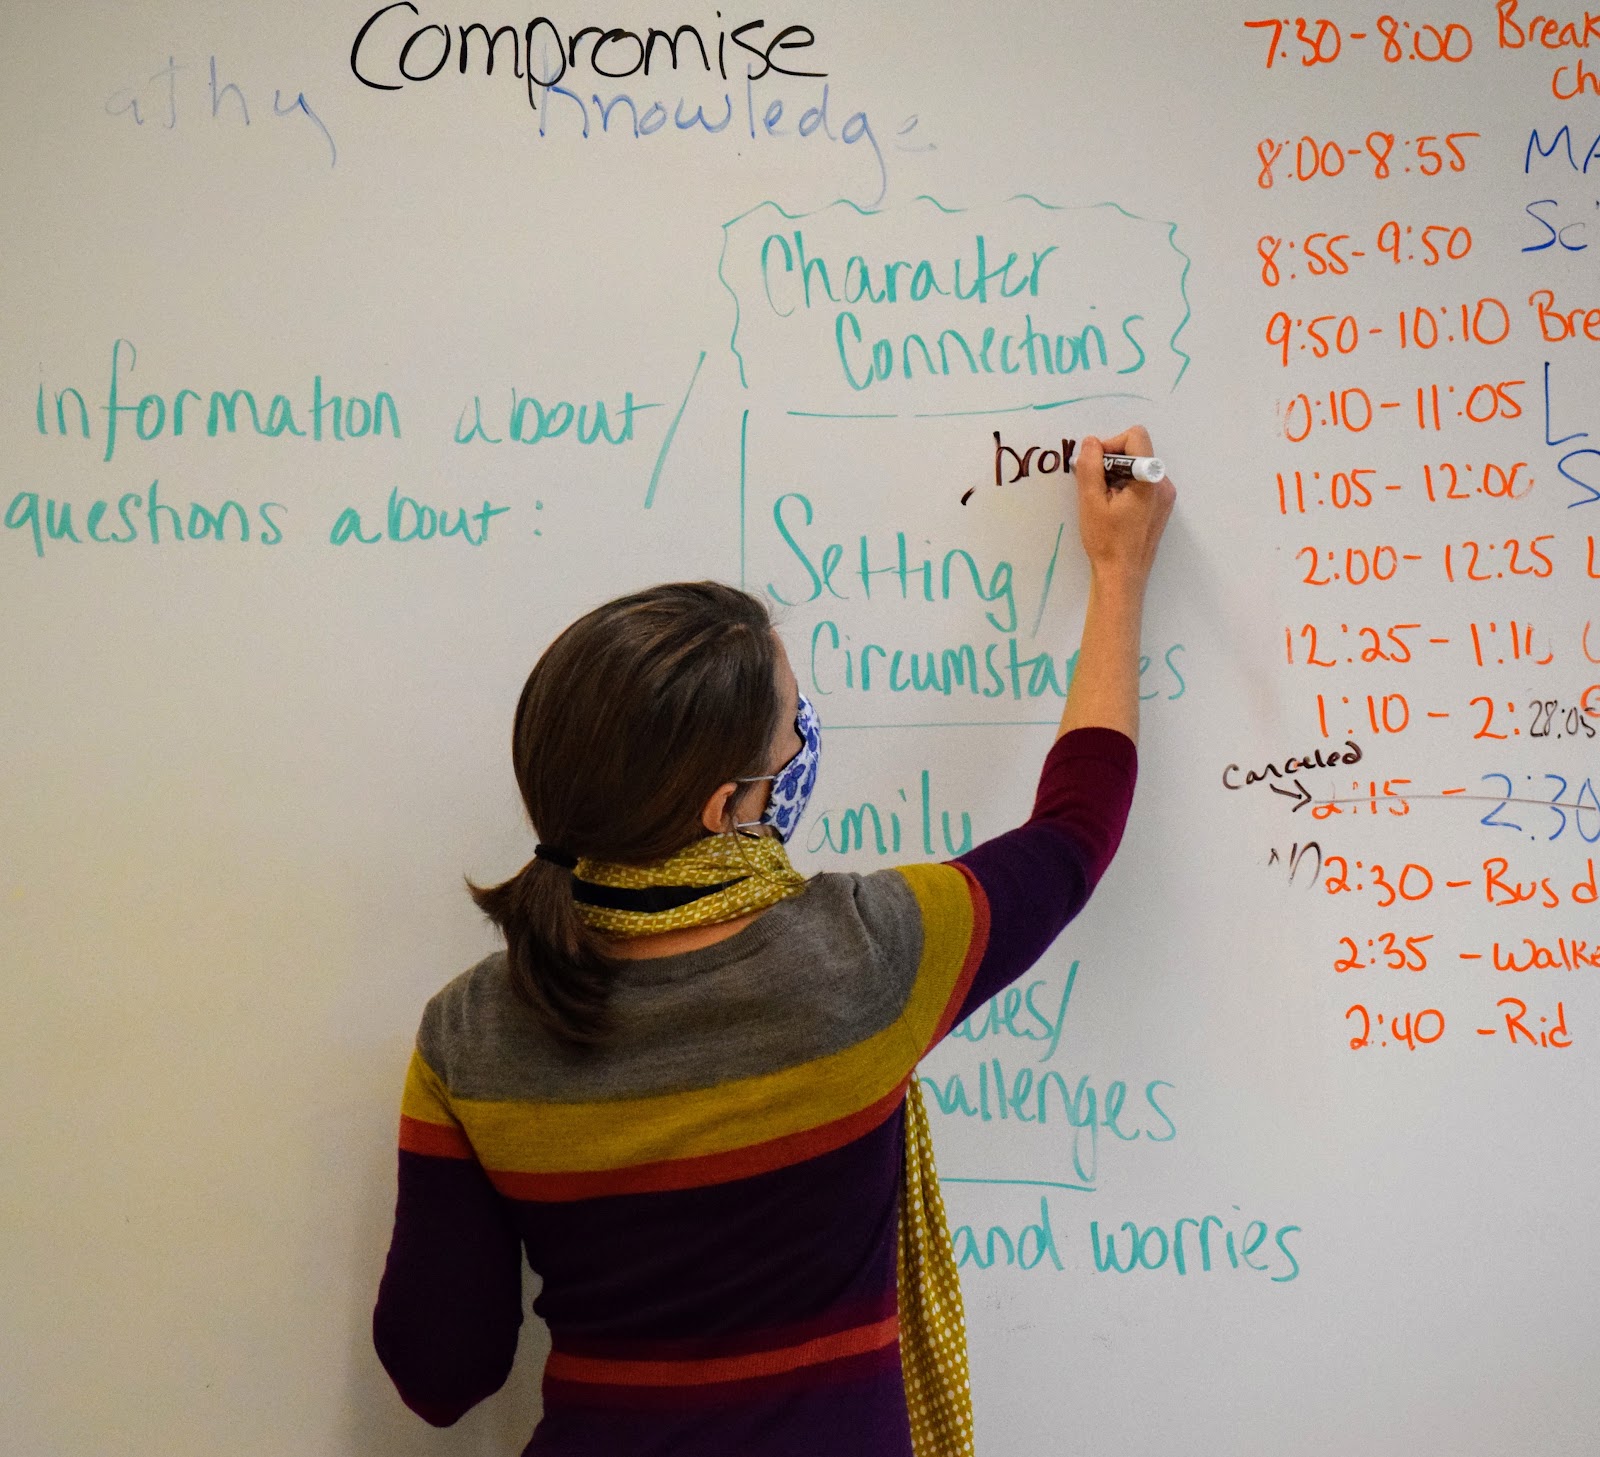 Compromise
athy Knowledge
Character
Connections
information about/
questions about:
bro
Setting/
Circumsta es
amily
es/
hallenges
and worries
7:30-8:00 Break
Ch
8:00-8:55 MA
8:55-9:50 Sc
9:50-10:10 Bre
0:10-11:05 L
11:05-12:00 S
2:00-12:25 L
12:25-1:1
1:10-2: 28:05
Canceled
2:15-2:30
2:30-Bus d
2:35-Walke
2:40-Rid